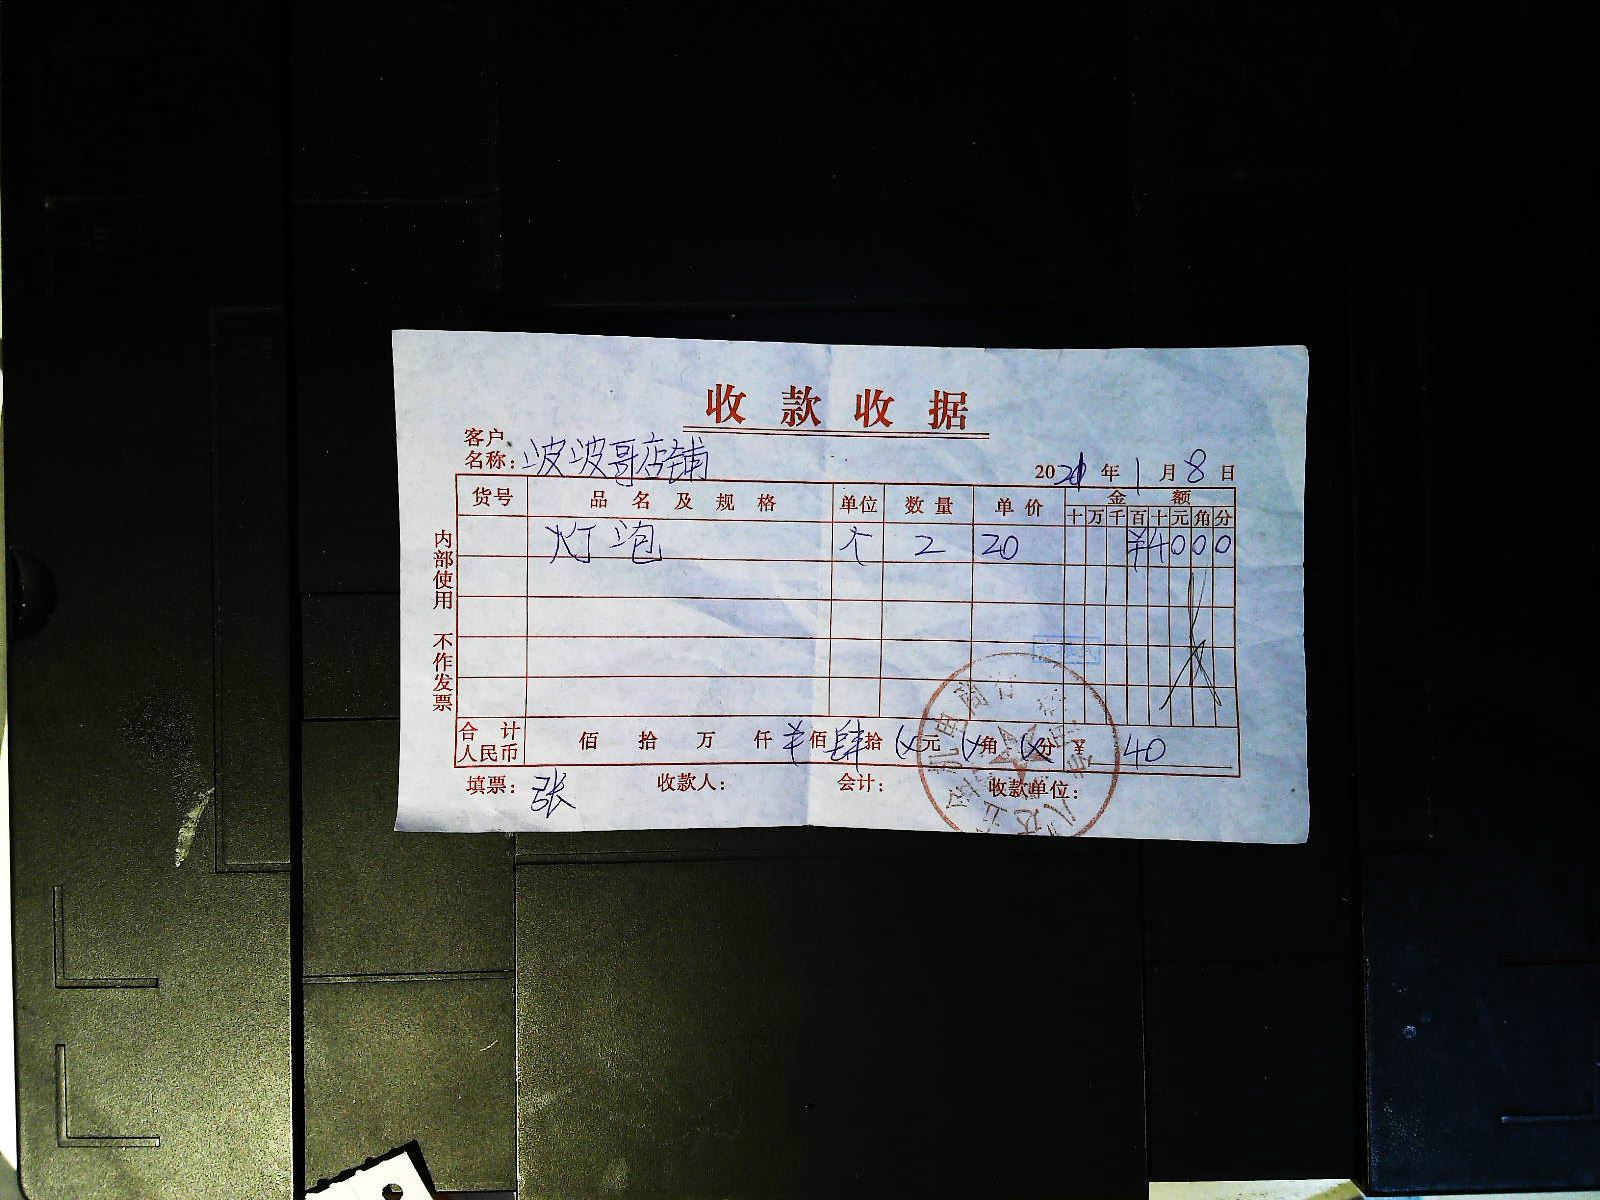 收款收据
客户名称：波波哥店铺
2021年1月8日
货号 品名及规格 单位 数量 单价 金额
十 万 千 百 十 元 角 分
灯泡 个 2 20 ¥4000
内部使用 不作发票
合计人民币 佰 拾 万 仟 ¥佰 肆拾 元 角 分 ¥ 40
填票：张 收款人： 会计： 收款单位：